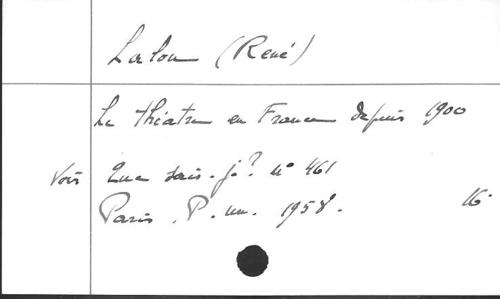 Lalou (René)
Le théatre en France depuis 1900
Voir Que sais-je? n° 461
Paris. P. un. 1958. 16°